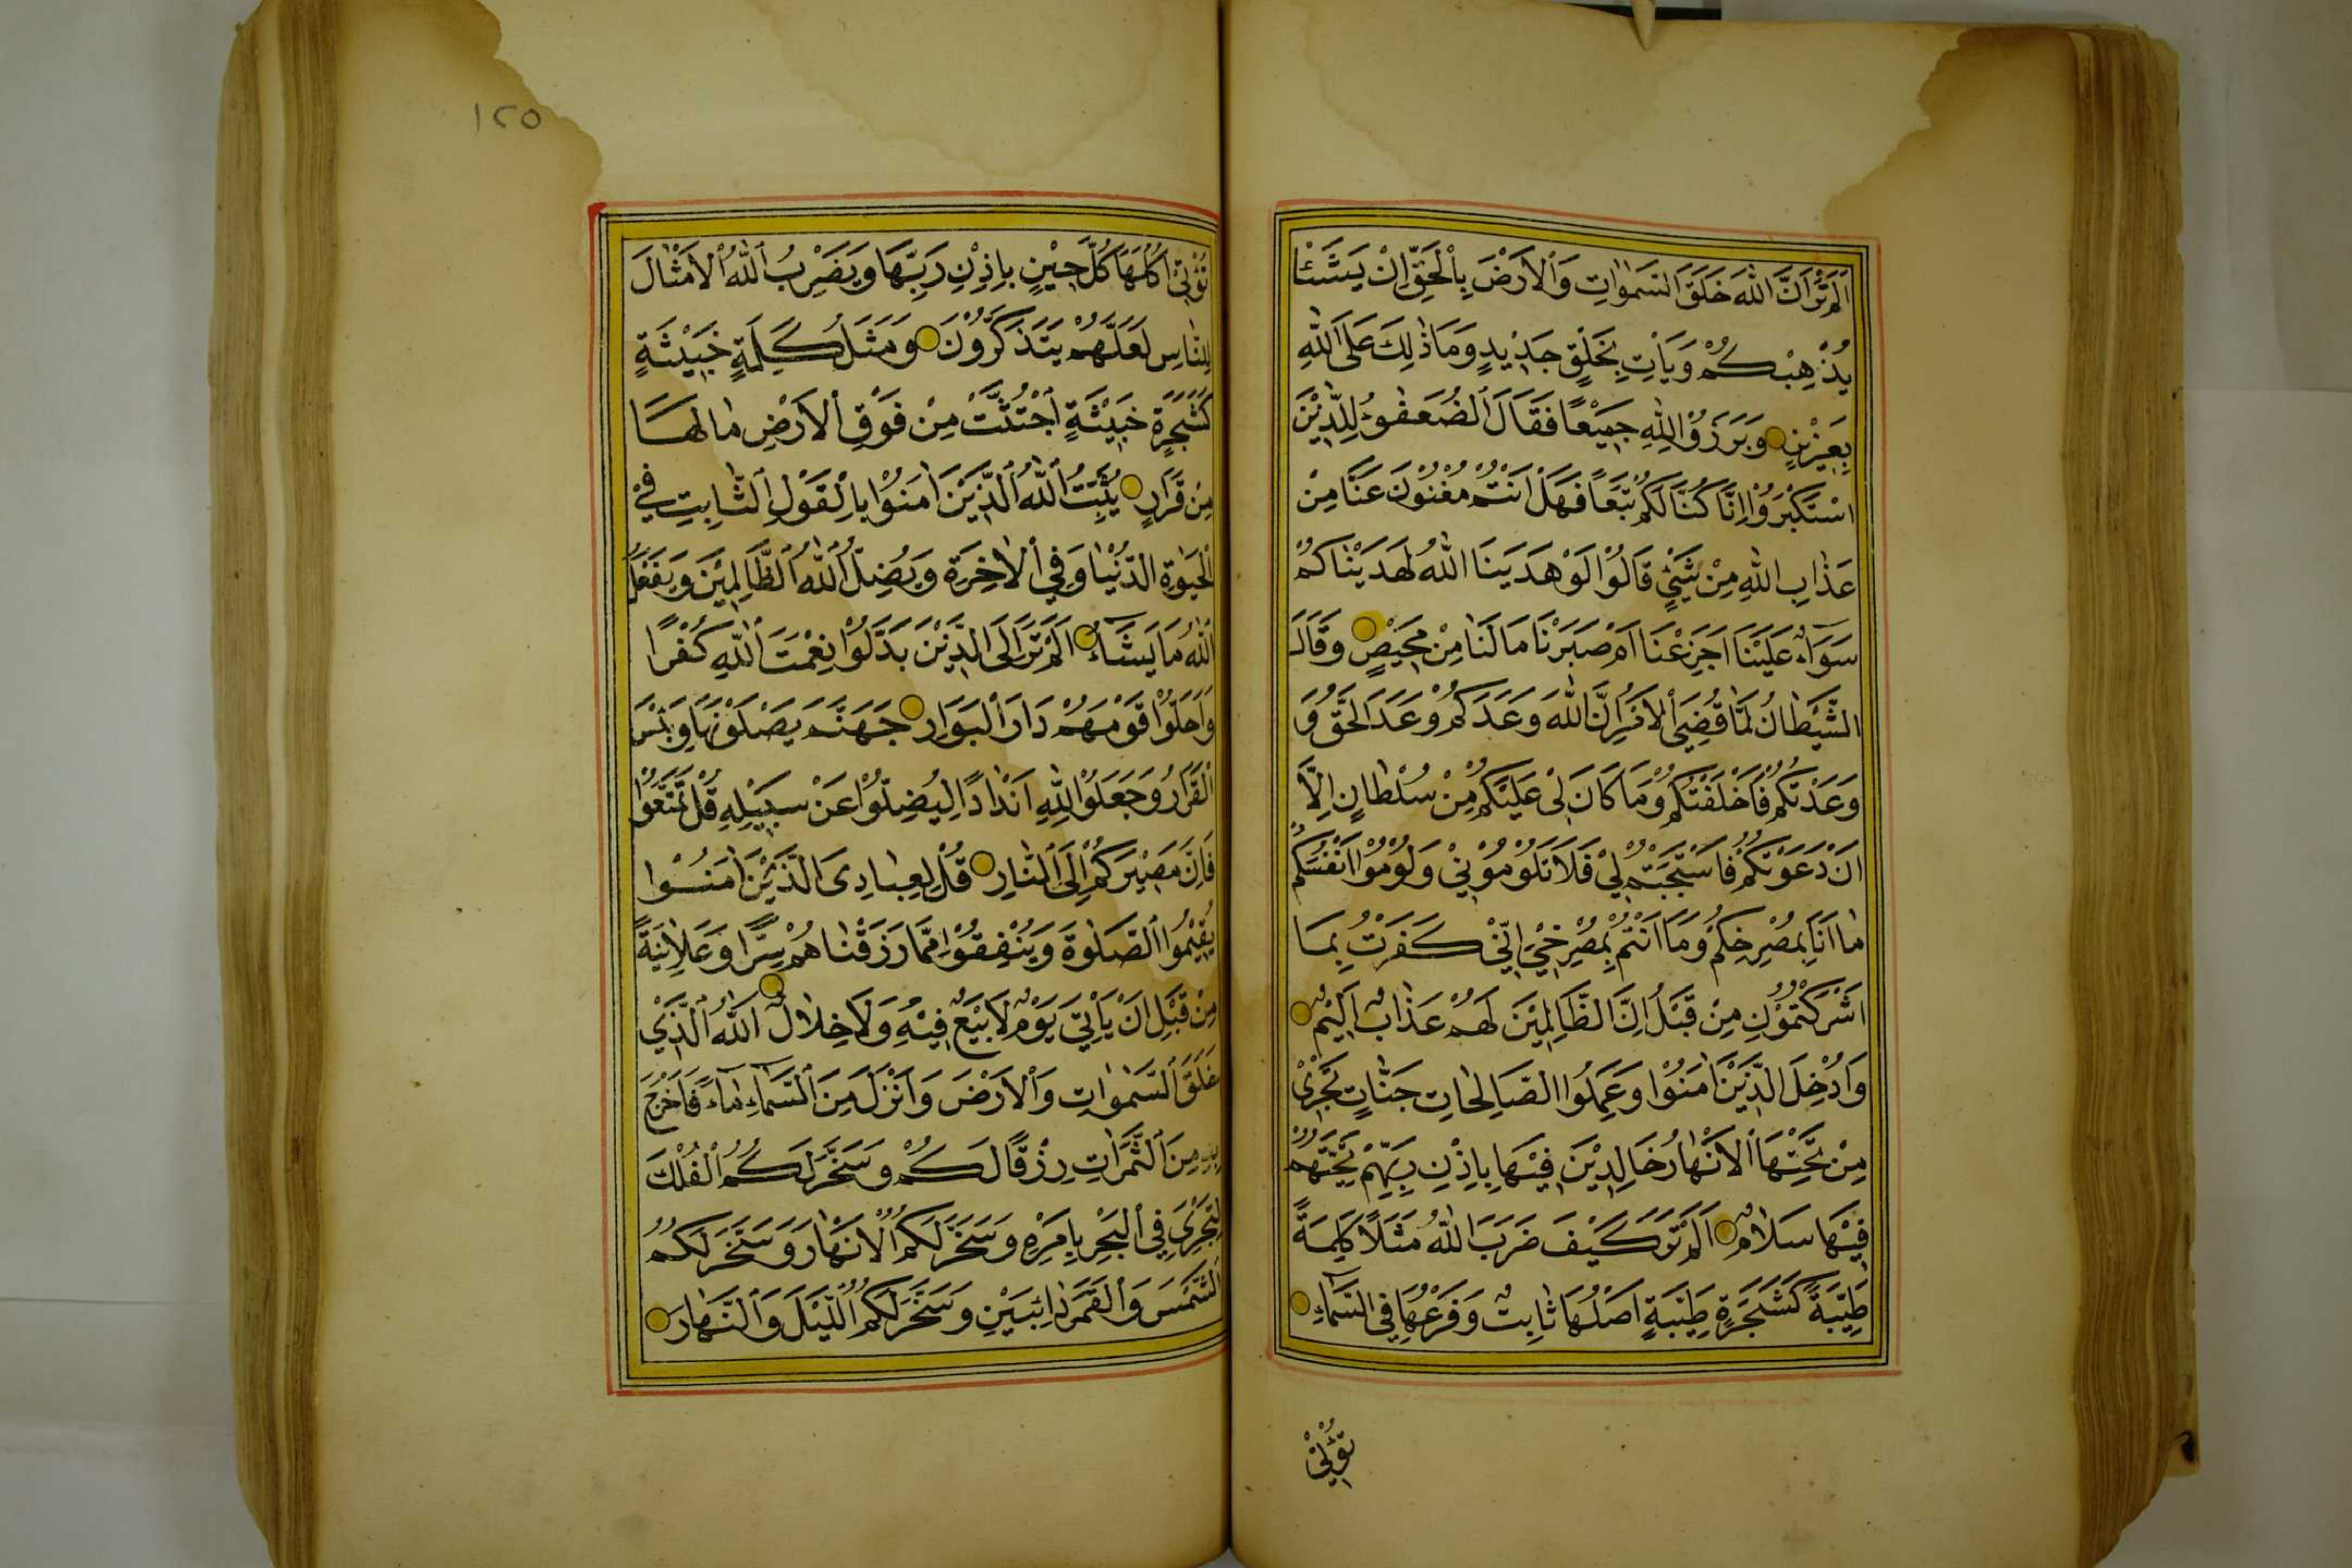 اَلَمْ تَرَ اَنَّ اللّٰهَ خَلَقَ السَّمٰوَاتِ وَالْاَرْضَ بِالْحَقِّ اِنْ يَشَئْا
يُذْهِبْكُمْ وَيَاْتِ بِخَلْقٍ جَدٖيدٍ وَمَا ذٰلِكَ عَلَى اللّٰهِ
بِعَزٖيزٍ وَبَرَزُوْا لِلّٰهِ جَمٖيْعًا فَقَالَ الضُّعَفٰوُ لِلَّذٖيْنَ
اسْتَكْبَرُوْا اِنَّا كُنَّا لَكُمْ تَبَعًا فَهَلْ اَنْتُمْ مُغْنُوْنَ عَنَّا مِنْ
عَذٰابِ اللّٰهِ مِنْ شَيْئٍ قَالُوْا لَوْ هَدَيٰنَا اللّٰهُ لَهَدَيْنٰاكُمْ
سَوَآءٌ عَلَيْنَا اَجَزِعْنَا اَمْ صَبَرْنَا مَا لَنَا مِنْ مَحٖيْصٍ وَقَالَ
الشَّيْطَانُ لَمَّا قُضِيَ الْاَمْرُ اِنَّ اللّٰهَ وَعَدَكُمْ وَعْدَ الْحَقِّ وَ
وَعَدْتُكُمْ فَاَخْلَفْتُكُمْ وَمَا كَانَ لٖىْ عَلَيْكُمْ مِنْ سُلْطَانٍ اِلَّا
اَنْ دَعَوْتُكُمْ فَاسْتَجَبْتُمْ لٖيْ فَلَا تَلُوْمُوْنٖيْ وَلُوْمُوْا اَنْفُسَكُمْ
مٰا اَنَا بِمُصْرِخِكُمْ وَمَا اَنْتُمْ بِمُصْرِخِيَّ اِنّٖيْ كَفَرْتُ بِمَا
اَشْرَكْتُمُوْنِ مِنْ قَبْلُ اِنَّ الظَّالِمٖيْنَ لَهُمْ عَذٰابٌ اَلٖيْمٌ
وَاُدْخِلَ الَّذٖيْنَ اٰمَنُوْا وَعَمِلُوا الصَّالِحَاتِ جَنّٰاتٍ تَجْرٖىْ
مِنْ تَحْتِهَا الْاَنْهَارُ خَالِدٖيْنَ فٖيْهَا بِاِذْنِ رَبِّهِمْ تَحِيَّتُهُمْ
فٖيْهَا سَلَامٌ اَلَمْ تَرَ كَيْفَ ضَرَبَ اللّٰهُ مَثَلًا كَلِمَةً
طَيِّبَةً كَشَجَرَةٍ طَيِّبَةٍ اَصْلُهَا ثَابِتٌ وَفَرْعُهَا فِي السَّمَاءِ
تُؤْتٖىْ
١٢٥
تُؤْتٖىْ اُكُلَهَا كُلَّ حٖيْنٍ بِاِذْنِ رَبِّهَا وَيَضْرِبُ اللّٰهُ الْاَمْثَالَ
لِلنّٰاسِ لَعَلَّهُمْ يَتَذَكَّرُوْنَ وَمَثَلُ كَلِمَةٍ خَبٖيْثَةٍ
كَشَجَرَةٍ خَبٖيْثَةٍ اجْتُثَّتْ مِنْ فَوْقِ الْاَرْضِ مٰا لَهَا
مِنْ قَرَارٍ يُثَبِّتُ اللّٰهُ الَّذٖيْنَ اٰمَنُوْا بِالْقَوْلِ الثَّابِتِ فٖيْ
الْحَيٰوةِ الدُّنْيٰا وَفِي الْاٰخِرَةِ وَيُضِلُّ اللّٰهُ الظَّالِمٖيْنَ وَيَفْعَلُ
اللّٰهُ مَا يَشَآءُ اَلَمْ تَرَ اِلَى الَّذٖيْنَ بَدَّلُوْا نِعْمَتَ اللّٰهِ كُفْرًا
وَاَحَلُّوْا قَوْمَهُمْ دَارَ الْبَوَارِ جَهَنَّمَ يَصْلَوْنَهَا وَبِئْسَ
الْقَرَارُ وَجَعَلُوْا لِلّٰهِ اَنْدَادًا لِيُضِلُّوْا عَنْ سَبٖيْلِهٖ قُلْ تَمَتَّعُوْا
فَاِنَّ مَصٖيْرَكُمْ اِلَى النَّارِ قُلْ لِعِبَادِىَ الَّذٖيْنَ اٰمَنُوْا
يُقٖيْمُوا الصَّلٰوةَ وَيُنْفِقُوْا مِمَّا رَزَقْنٰاهُمْ سِرًّا وَعَلَانِيَةً
مِنْ قَبْلِ اَنْ يَاْتِيَ يَوْمٌ لَا بَيْعٌ فٖيْهِ وَلَا خِلَالٌ اَللّٰهُ الَّذٖيْ
خَلَقَ السَّمٰوَاتِ وَالْاَرْضَ وَاَنْزَلَ مِنَ السَّمَآءِ مَآءً فَاَخْرَجَ
بِهٖ مِنَ الثَّمَرَاتِ رِزْقًا لَكُمْ وَسَخَّرَ لَكُمُ الْفُلْكَ
لِتَجْرِيَ فِي الْبَحْرِ بِاَمْرِهٖ وَسَخَّرَ لَكُمُ الْاَنْهَارَ وَسَخَّرَ لَكُمُ
الشَّمْسَ وَالْقَمَرَ دَائِبَيْنِ وَسَخَّرَ لَكُمُ اللَّيْلَ وَالنَّهَارَ